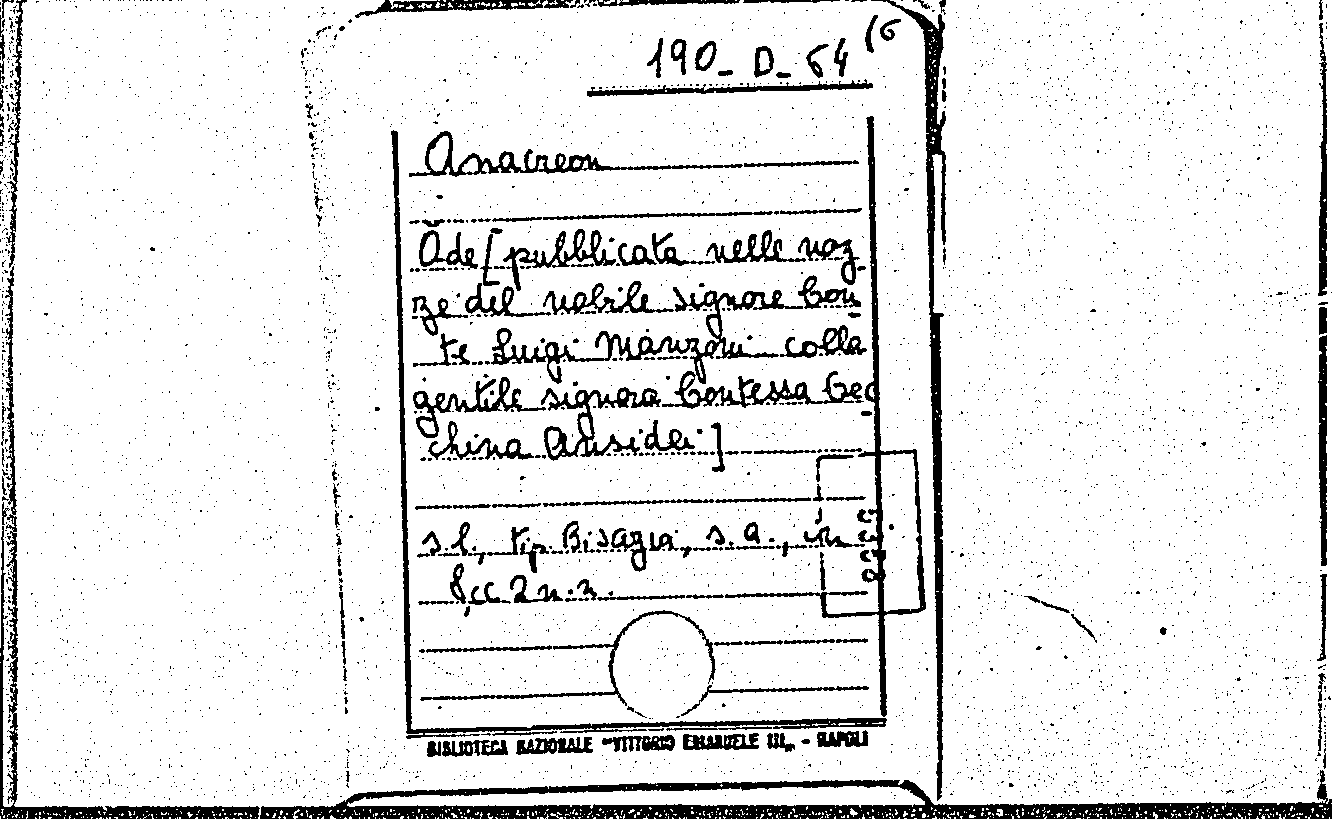 190-D-64 16
Anacreon
Ode [pubblicata nelle noz-
ze del nobile signore Con
te Luigi Manzoni colla
gentile signora Contessa Cec
china Ansidei]
s.l., tip. Bisazia, s.a., in
8, cc 2 n.n.
BIBLIOTECA NAZIONALE "VITTORIO EMANUELE III„ - NAPOLI